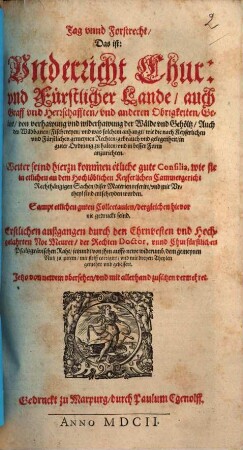 Jag vnnd Forstrecht/
Das ist:
Vnderricht Chur:
vnd Fürstlicher Lande/ auch
Graff vnd Herrschafften/ vnd anderen Obrigkeiten/ Ge-
/ von verhawung vnd widerhawung der Wälde vnd Gehöltz/ Auch
den Wildbanen/ Fischereyen/ vnd was solchem anhangt/ wie die nach Keyserlichen
vnd Fürstlichen gemeinen Rechten
guter Ordnung zu halten/ vnd in besser Form
anzurichten.
Weiter seind hierzu kommen etliche gute Consilia, wie sie
in etlichen an dem Hochlöblichen Keyserlichen Cammergericht
Rechthängigen Sachen dieser Materien
theyl sind entscheyden worden.
Sampt etlichen guten Collectanien/ dergleichen hievor
nie gedruckt seind.
Erstlichen außgangen durch den Ehrnvesten vnd Hoch-
gelahrten Noe Meurer/ der Rechten Doctor, vnnd Churfürstlichen
Pfaltzgrävischen Raht/ jetzund von jhm auffs
Nutz zu gutem/ mit fleiß corrigirt/ vnd mit dreyen Theylen
gemehrt vnd gebessert.
Jetzo von newem vbersehen/ vnd mit allerhand zusätzen vermehret.
Gedruckt zu Marpurg/ durch Paulum Egenolff.
ANNO MDCII.